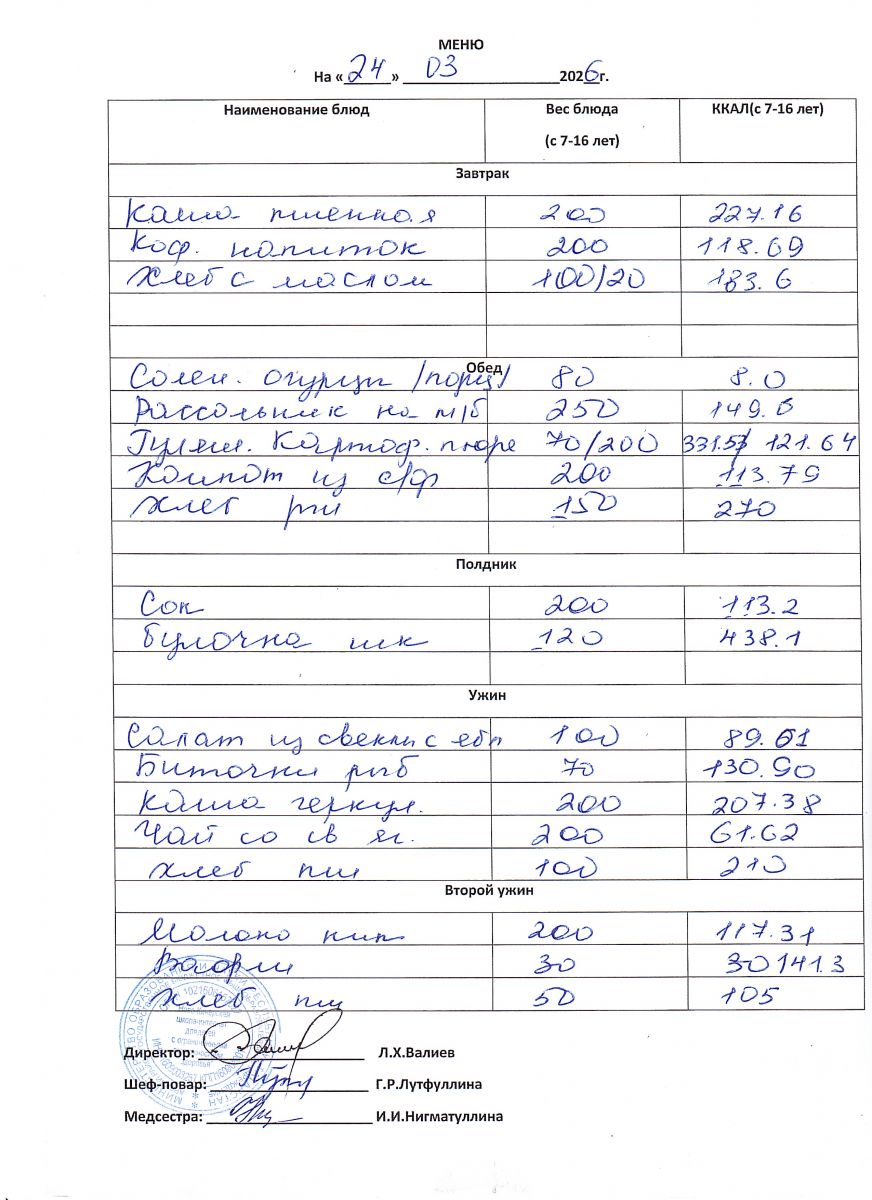 МЕНЮ
На «24» 03 2026г.
Наименование блюд Вес блюда (с 7-16 лет) ККАЛ(с 7-16 лет)
Завтрак
Каша пшенная 200 227.16
Коф. напиток 200 118.69
Хлеб с маслом 100/20 183.6
Обед
Солен. огурцы /порц/ 80 8.0
Рассольник на м/б 250 149.6
Гуляш. Картоф. пюре 70/200 331.57 121.64
Компот из с/ф 200 113.79
Хлеб рж 150 270
Полдник
Сок 200 113.2
Булочка шк 120 438.1
Ужин
Салат из свеклы с ябл 100 89.61
Биточки рыб 70 130.90
Каша геркул. 200 207.38
Чай со св яг. 200 61.62
Хлеб пш 100 210
Второй ужин
Молоко кип 200 117.31
Вафли 30
Хлеб пш 50 105
Директор: Л.Х.Валиев
Шеф-повар: Г.Р.Лутфуллина
Медсестра: И.И.Нигматуллина